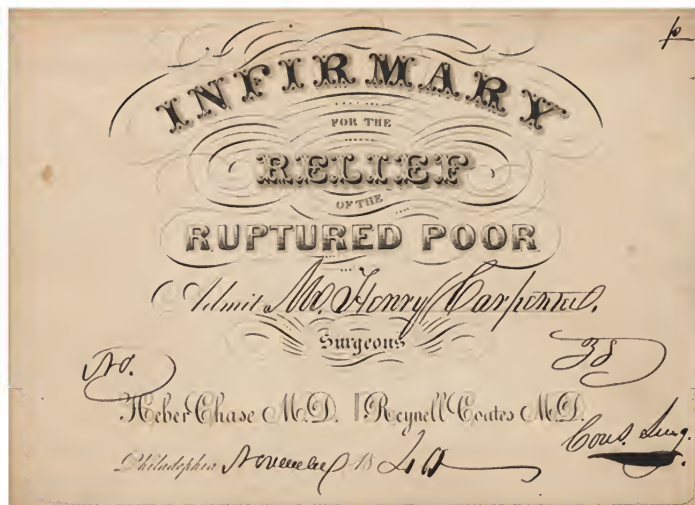 INFIRMARY
FOR THE
RELIEF
OF THE
RUPTURED POOR
Admit Mr. Henry Carpenter.
Surgeons
No. 38
Heber Chase M.D. Reynell Coates M.D.
Cons. Surg.
Philadephia November 1840